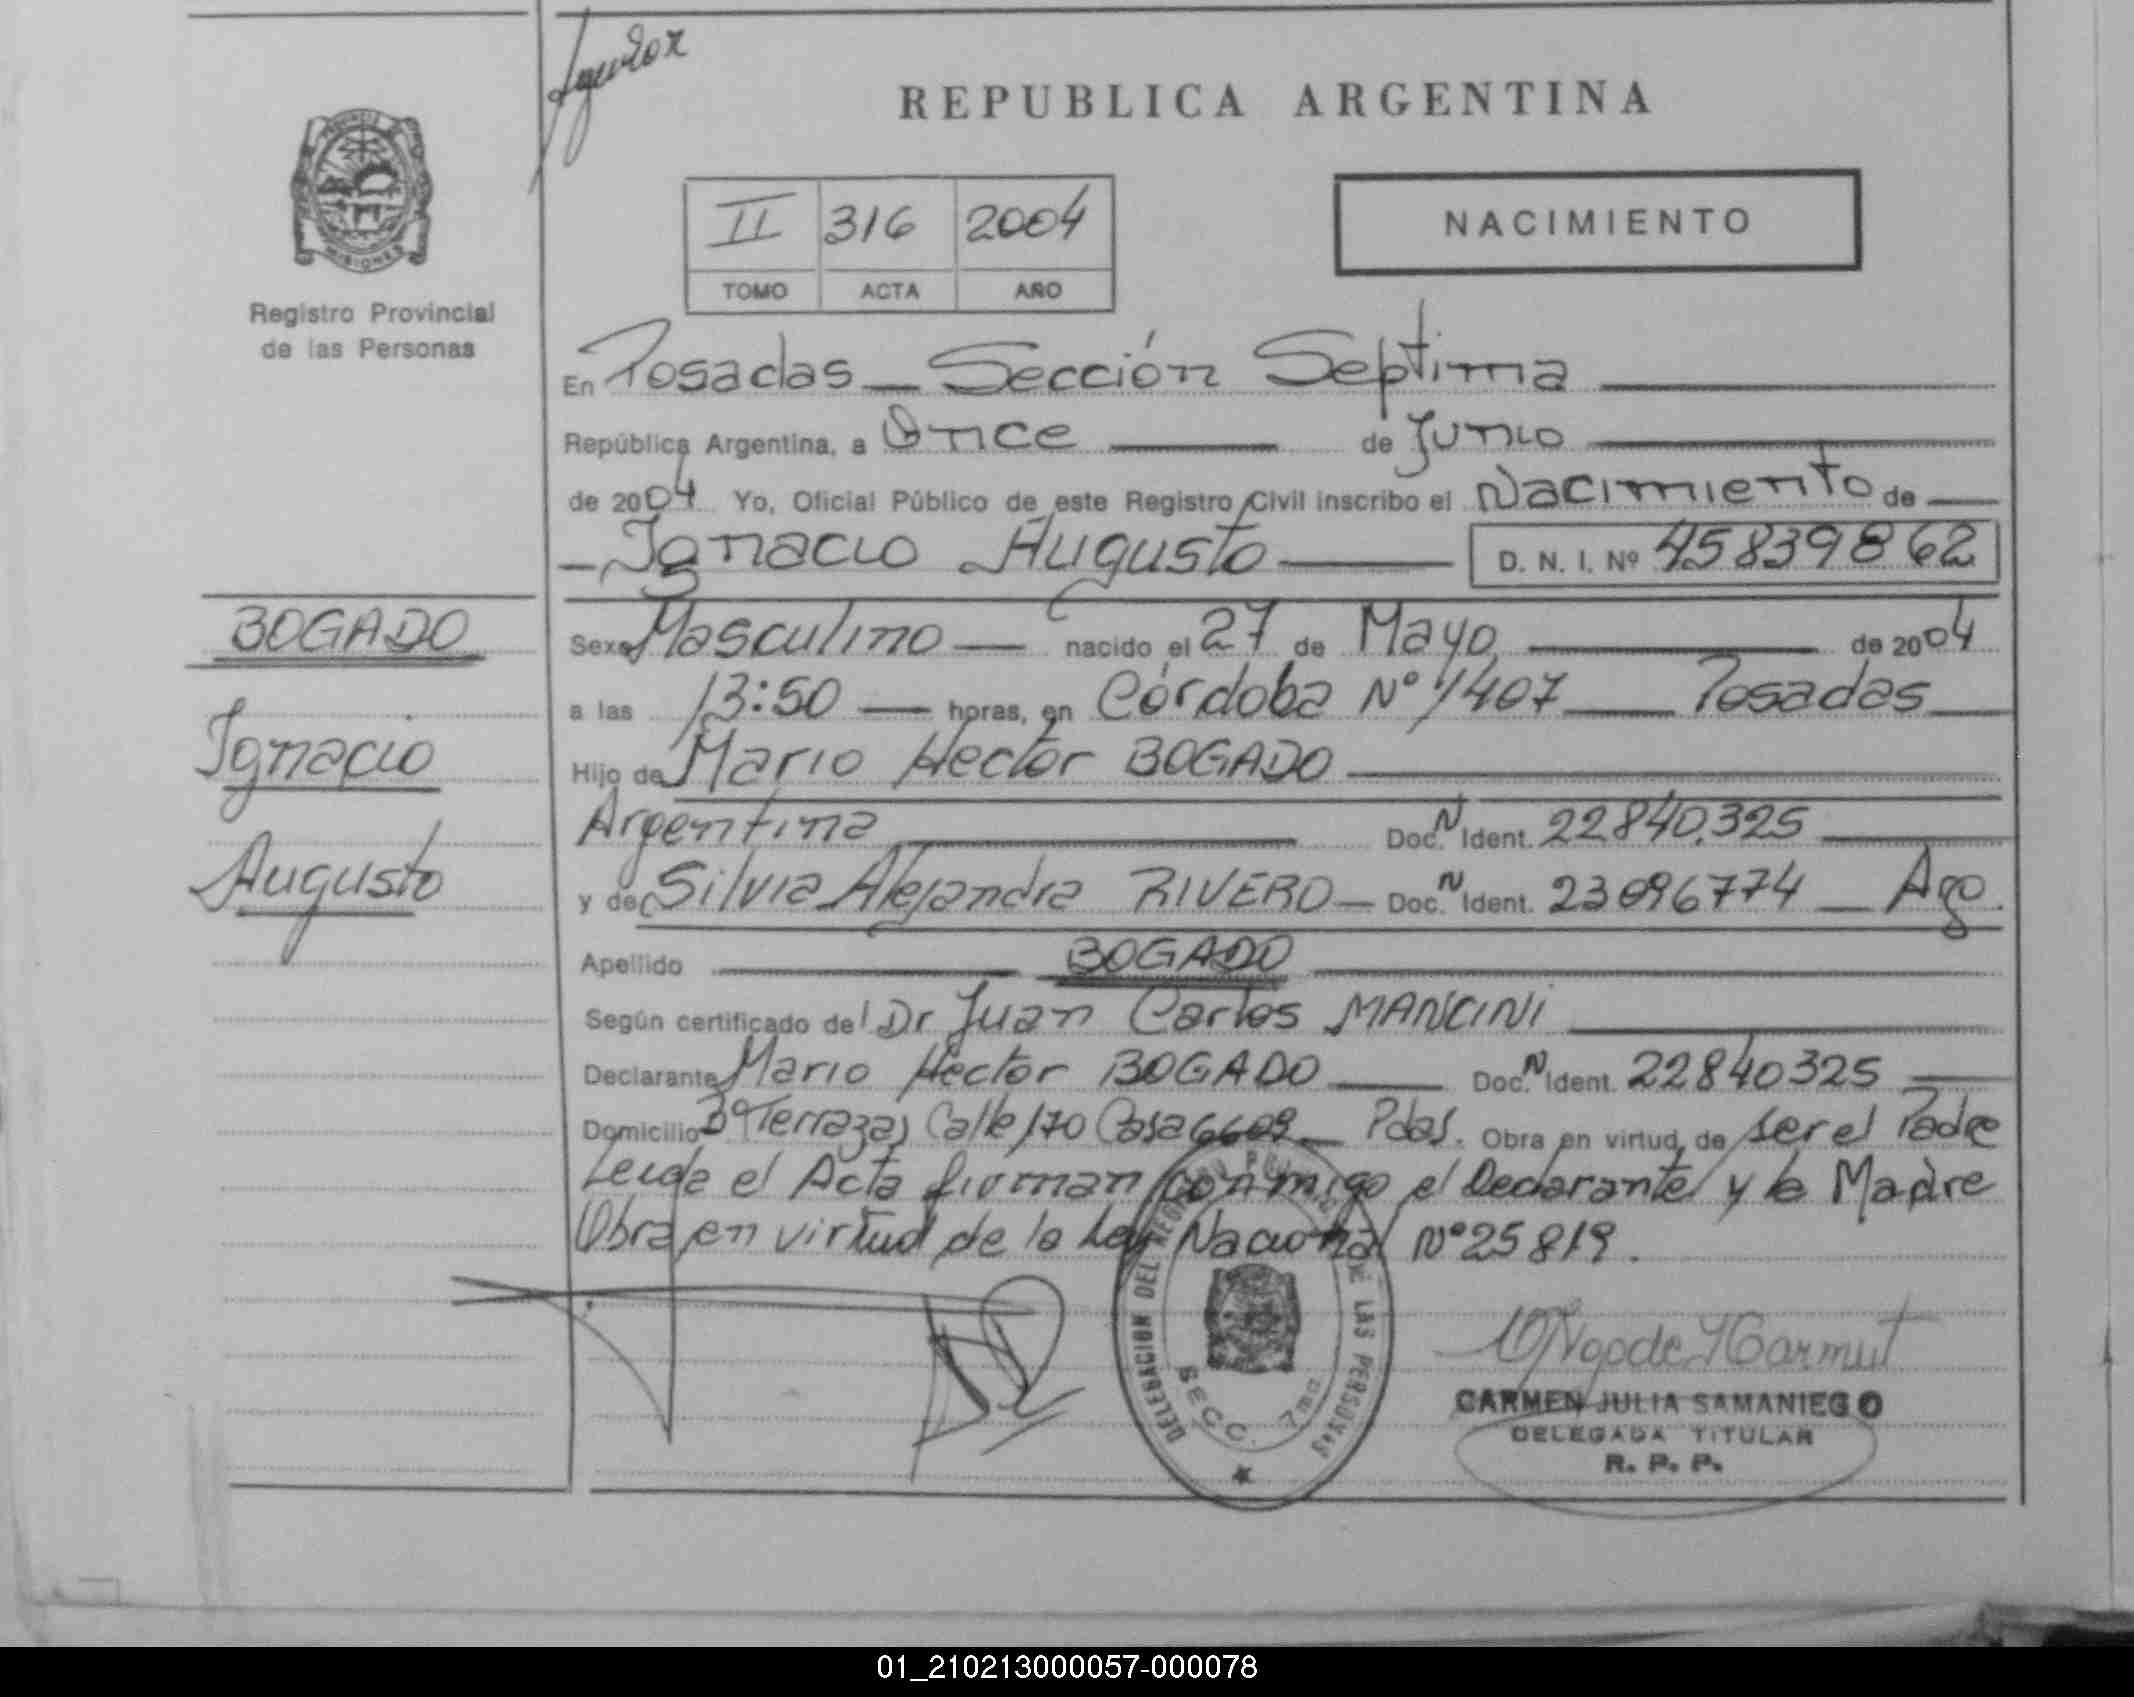 REPUBLICA ARGENTINA
PROVINCIA DE
MISIONES
Registro Provincial
de las Personas
II 316 2004
TOMO ACTA AÑO
NACIMIENTO
En Posadas — Sección Septima
República Argentina, a Once de Junio
de 2004 Yo, Oficial Público de este Registro Civil inscribo el Nacimiento de
Ignacio Augusto D. N. I. Nº 45839862
BOGADO
Ignacio
Augusto
Sexo Masculino — nacido el 27 de Mayo de 2004
a las 13:50 — horas, en Córdoba Nº 1407 — Posadas
Hijo de Mario Hector BOGADO
Argentina Doc. N Ident. 22840.325
y de Silvia Alejandra RIVERO — Doc. N Ident. 23096774 — Ago.
Apellido BOGADO
Según certificado del Dr Juan Carlos MANCINI
Declarante Mario Hector BOGADO Doc. N Ident. 22840325
Domicilio Terrazas Calle 170 Casa 6609 — Pdas. Obra en virtud de ser el Padre
Leida el Acta firman conmigo el Declarante y la Madre
Obra en virtud de la Ley Nacional Nº 25819.
DELEGACION DEL REGISTRO DE LAS PERSONAS
SECC. 7ma
CARMEN JULIA SAMANIEGO
DELEGADA TITULAR
R. P. P.
01_210213000057-000078